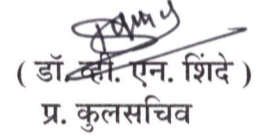 ( डॉ. व्ही. एन. शिंदे )
प्र. कुलसचिव